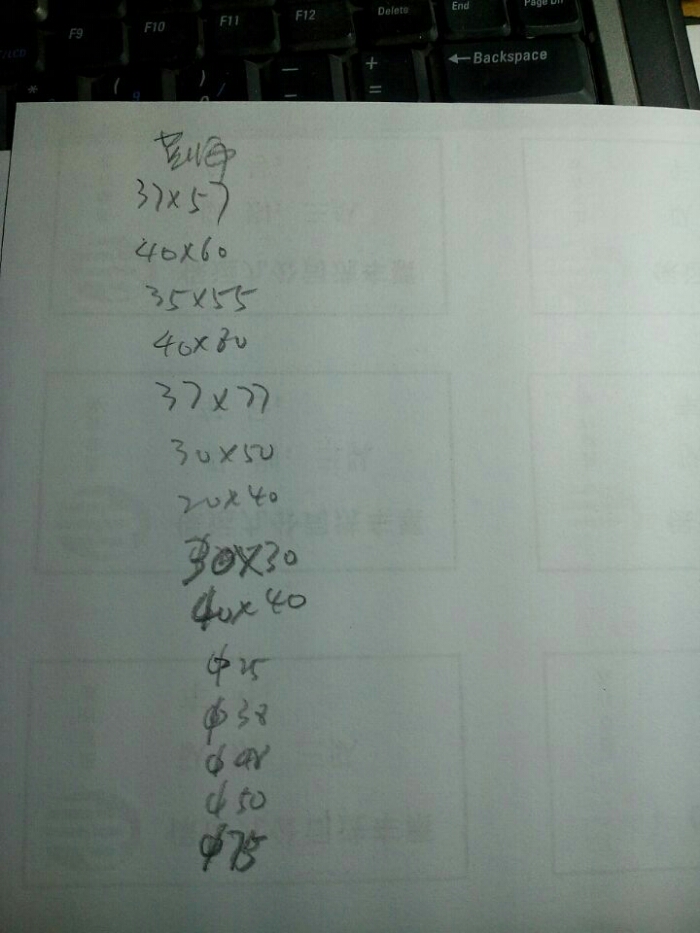 F9 F10 F11 F12 Delete End
Backspace
37×57
40×60
35×55
40×80
37×77
30×50
20×40
30×30
40×40
φ25
φ38
φ48
φ50
φ75